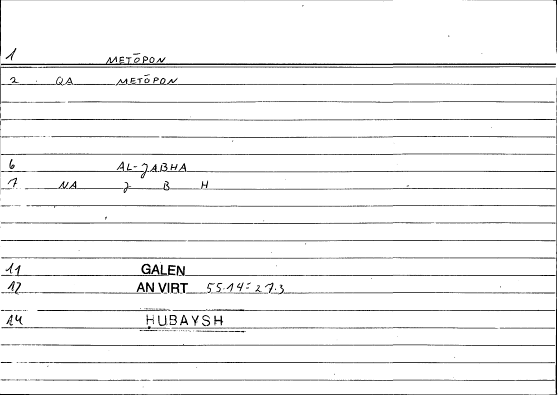 1 METŌPON
2 QA METŌPON
6 AL-JABHA
7 NA J B H
11 GALEN
12 AN VIRT 55.14 = 27.3
14 ḤUBAYSH